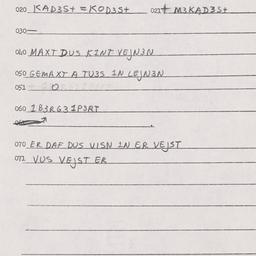 020 KAD3St = KOD3St 021 t M3KAD3St
030 —
040 MAXT DUS KINT VEJN3N
050 GEMAXT A TU3S IN LEJN3N
051 O
060 IB3RG3IP3RT
070 ER DAF DUS VISN IN ER VEJST
071 VUS VEJST ER